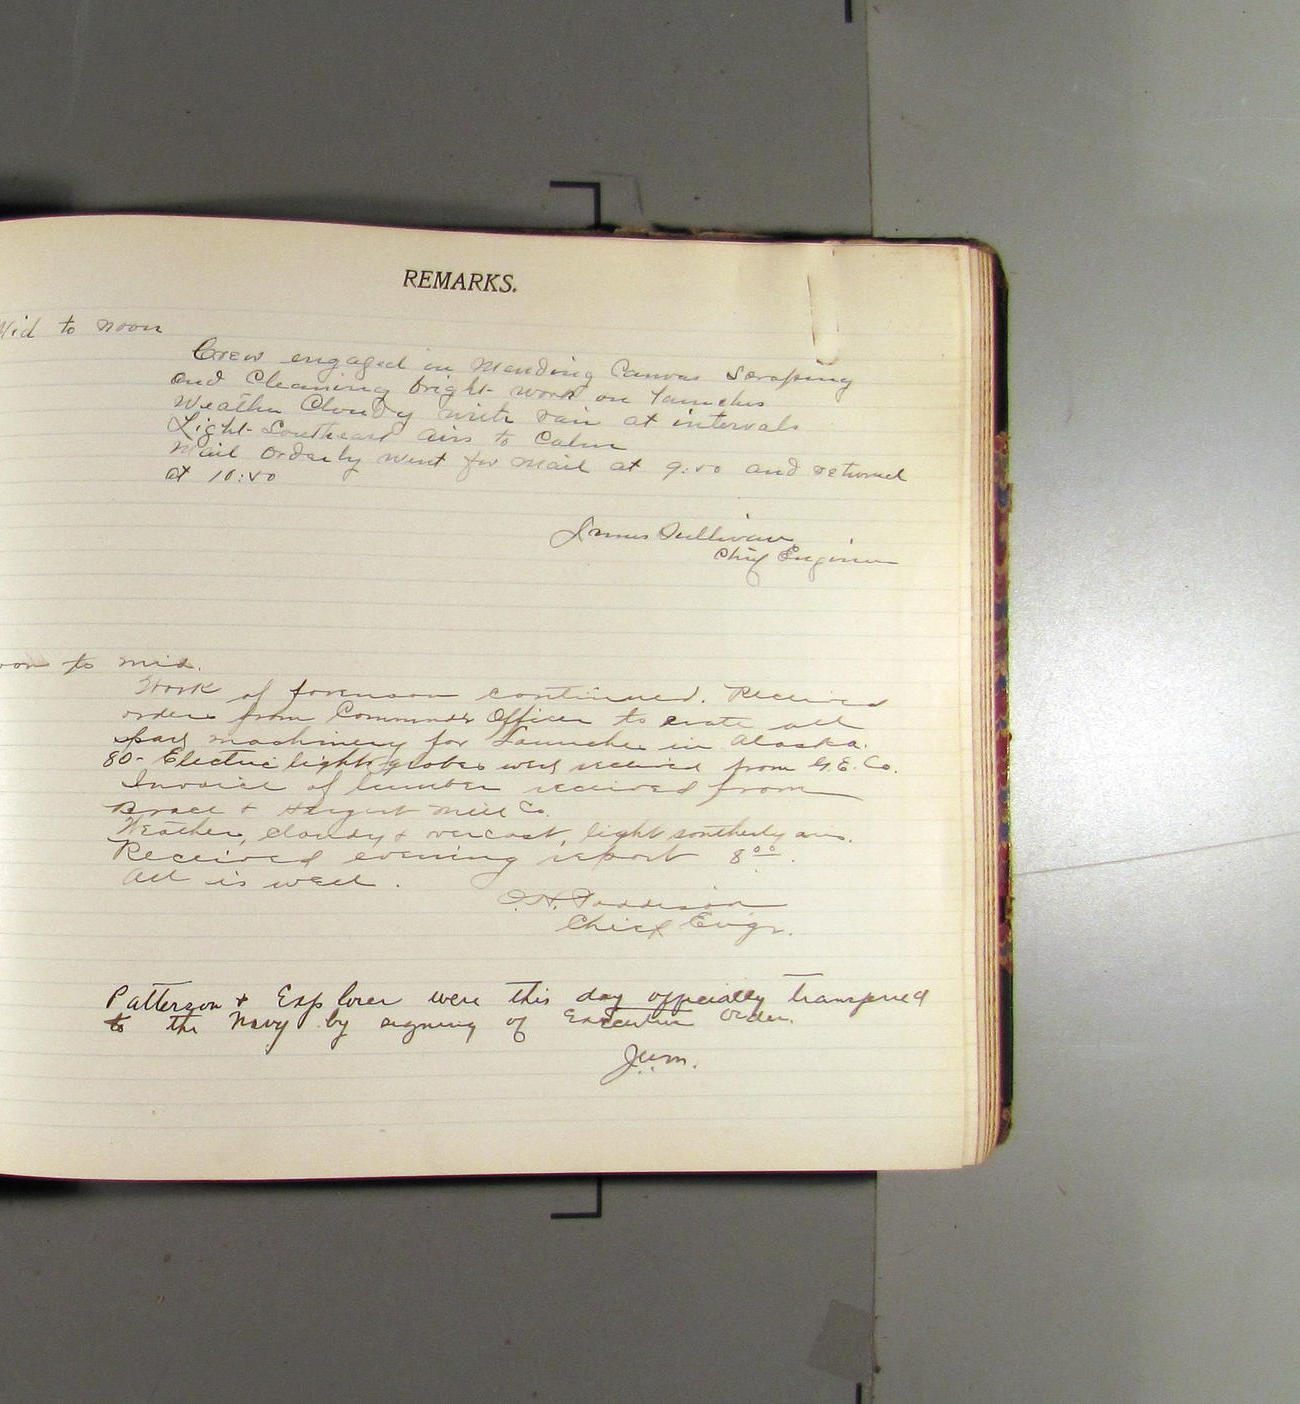 REMARKS.
Mid to noon
Crew engaged in Mending Canvas Scraping
and Cleaning bright work on launches
Weather Cloudy with rain at intervals
Light Southeast airs to Calm
Mail Orderly went for mail at 9:50 and returned
at 10:50
James Sullivan
Chief Engineer
oon to mid.
Work of forenoon continued. Received
orders from Officer to crate all
spare machinery for Launches in Alaska.
80- Electric light globes were received from G.E. Co.
Invoice of lumber received from
Brace & Hergert Mill Co.
Weather, cloudy & overcast, light southerly airs.
Received evening report 8⁰⁰.
All is well.
Chief Engr.
Patterson & Explorer were this day officially transferred
to the Navy by signing of Executive Order.